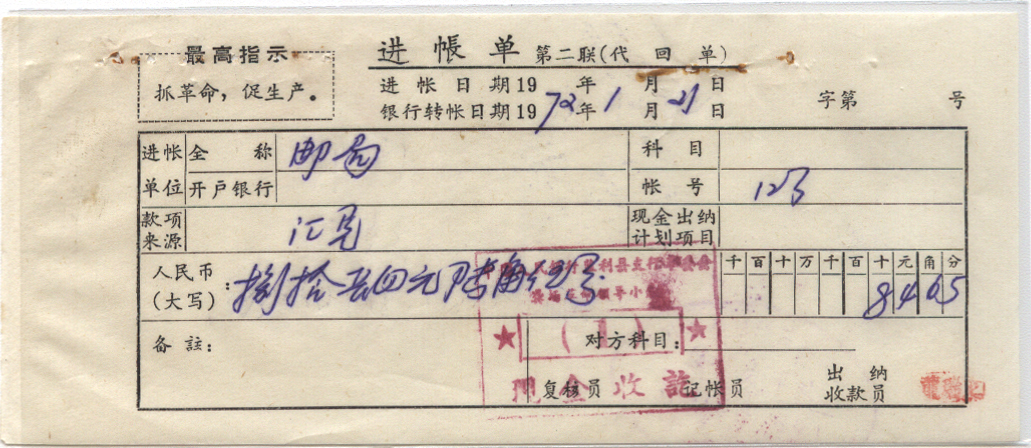 最高指示
抓革命，促生产。
进帳单 第二联(代回单)
进帐日期19 年 月 日
银行转帐日期1972年1月21日
字第 号
进帐单位 全称 邮局 科目
开户银行 帐号 123
款项来源 汇兑 现金出纳计划项目
人民币：(大写) 捌拾 四元陆角 千百十万千百十元角分
8465
备註： 对方科目：
复核员 记帐员 出纳收款员
现金收註